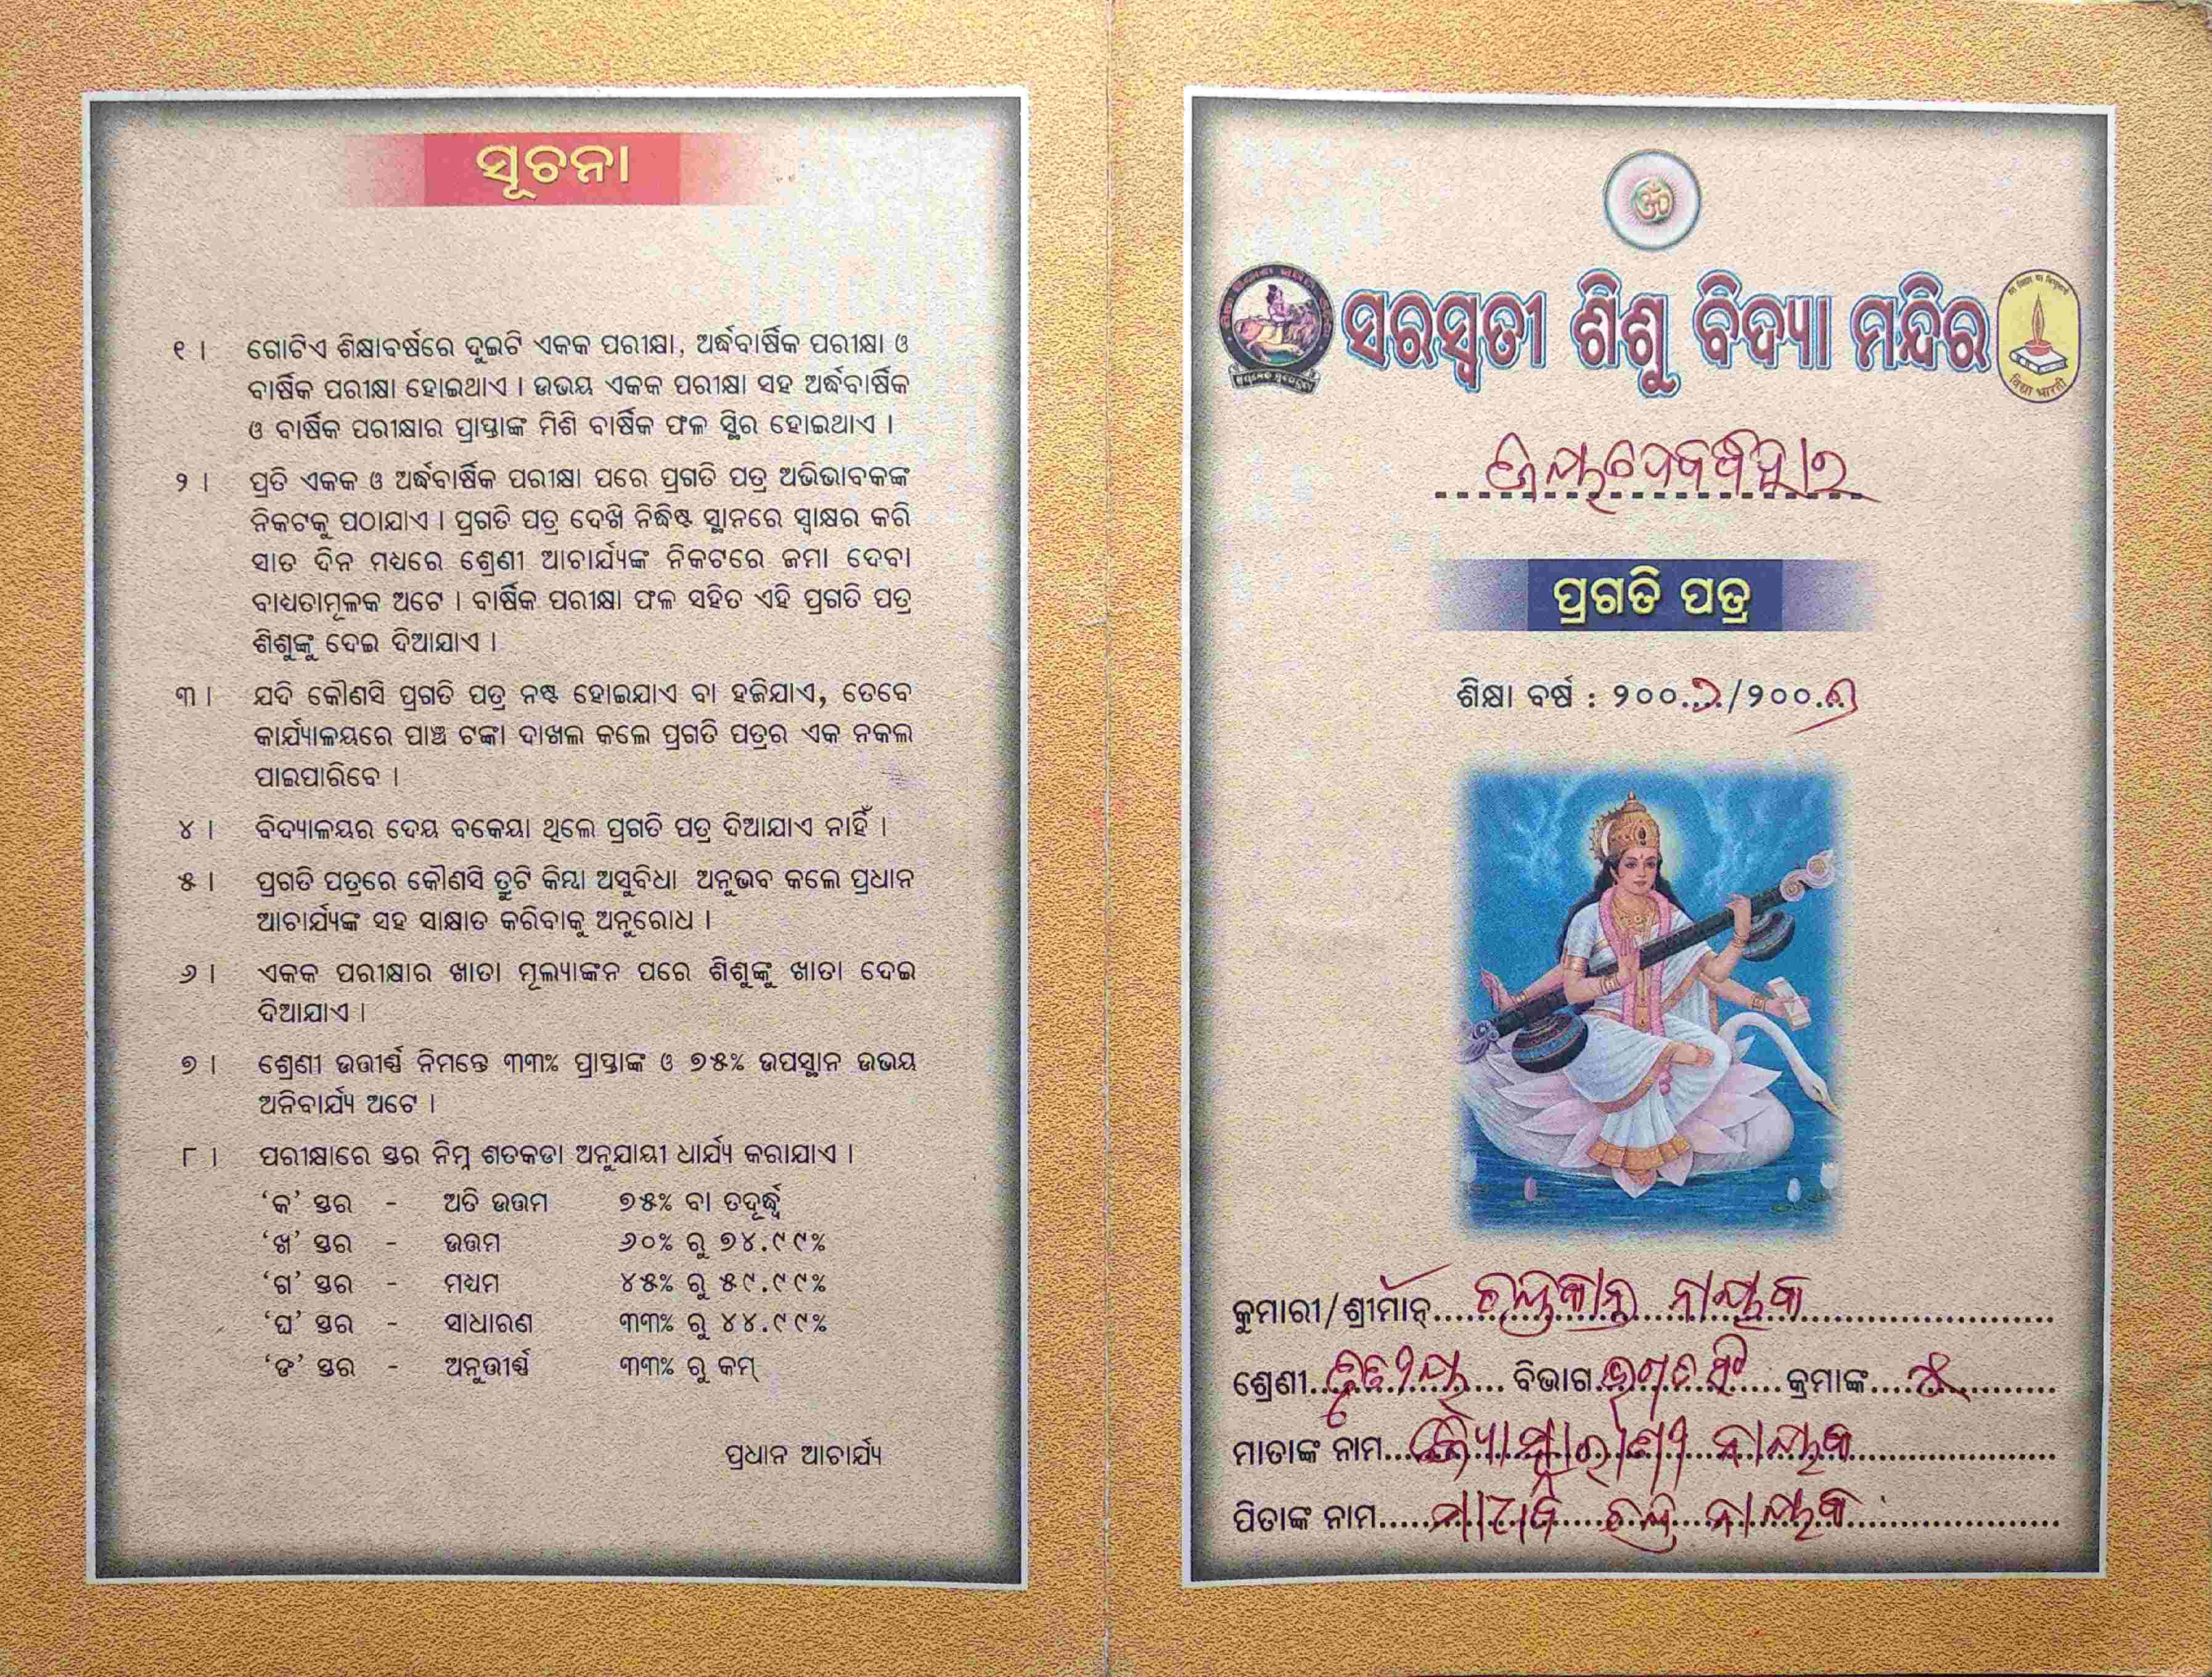 ସୂଚନା
୧। ଗୋଟିଏ ଶିକ୍ଷାବର୍ଷରେ ଦୁଇଟି ଏକକ ପରୀକ୍ଷା, ଅର୍ଦ୍ଧବାର୍ଷିକ ପରୀକ୍ଷା ଓ
ବାର୍ଷିକ ପରୀକ୍ଷା ହୋଇଥାଏ। ଉଭୟ ଏକକ ପରୀକ୍ଷା ସହ ଅର୍ଦ୍ଧବାର୍ଷିକ
ଓ ବାର୍ଷିକ ପରୀକ୍ଷାର ପ୍ରାପ୍ତାଙ୍କ ମିଶି ବାର୍ଷିକ ଫଳ ସ୍ଥିର ହୋଇଥାଏ।
୨। ପ୍ରତି ଏକକ ଓ ଅର୍ଦ୍ଧବାର୍ଷିକ ପରୀକ୍ଷା ପରେ ପ୍ରଗତି ପତ୍ର ଅଭିଭାବକଙ୍କ
ନିକଟକୁ ପଠାଯାଏ। ପ୍ରଗତି ପତ୍ର ଦେଖି ନିଦ୍ଧିଷ୍ଟ ସ୍ଥାନରେ ସ୍ୱାକ୍ଷର କରି
ସାତ ଦିନ ମଧ୍ୟରେ ଶ୍ରେଣୀ ଆଚାର୍ଯ୍ୟଙ୍କ ନିକଟରେ ଜମା ଦେବା
ବାଧ୍ୟତାମୂଳକ ଅଟେ। ବାର୍ଷିକ ପରୀକ୍ଷା ଫଳ ସହିତ ଏହି ପ୍ରଗତି ପତ୍ର
ଶିଶୁଙ୍କୁ ଦେଇ ଦିଆଯାଏ।
୩। ଯଦି କୌଣସି ପ୍ରଗତି ପତ୍ର ନଷ୍ଟ ହୋଇଯାଏ ବା ହଜିଯାଏ, ତେବେ
କାର୍ଯ୍ୟାଳୟରେ ପାଞ୍ଚ ଟଙ୍କା ଦାଖଲ କଲେ ପ୍ରଗତି ପତ୍ରର ଏକ ନକଲ
ପାଇପାରିବେ।
୪। ବିଦ୍ୟାଳୟର ଦେୟ ବକେୟା ଥିଲେ ପ୍ରଗତି ପତ୍ର ଦିଆଯାଏ ନାହିଁ।
୫। ପ୍ରଗତି ପତ୍ରରେ କୌଣସି ତ୍ରୁଟି କିମ୍ବା ଅସୁବିଧା ଅନୁଭବ କଲେ ପ୍ରଧାନ
ଆଚାର୍ଯ୍ୟଙ୍କ ସହ ସାକ୍ଷାତ କରିବାକୁ ଅନୁରୋଧ।
୬। ଏକକ ପରୀକ୍ଷାର ଖାତା ମୂଲ୍ୟାଙ୍କନ ପରେ ଶିଶୁଙ୍କୁ ଖାତା ଦେଇ
ଦିଆଯାଏ।
୭। ଶ୍ରେଣୀ ଉତ୍ତୀର୍ଣ୍ଣ ନିମନ୍ତେ ୩୩% ପ୍ରାପ୍ତାଙ୍କ ଓ ୭୫% ଉପସ୍ଥାନ ଉଭୟ
ଅନିବାର୍ଯ୍ୟ ଅଟେ।
୮। ପରୀକ୍ଷାରେ ସ୍ତର ନିମ୍ନ ଶତକଡା ଅନୁଯାୟୀ ଧାର୍ଯ୍ୟ କରାଯାଏ।
‘କ’ ସ୍ତର - ଅତି ଉତ୍ତମ ୭୫% ବା ତଦୂର୍ଦ୍ଧ୍ୱ
‘ଖ’ ସ୍ତର - ଉତ୍ତମ ୬୦% ରୁ ୭୪.୯୯%
‘ଗ’ ସ୍ତର - ମଧ୍ୟମ ୪୫% ରୁ ୫୯.୯୯%
‘ଘ’ ସ୍ତର - ସାଧାରଣ ୩୩% ରୁ ୪୪.୯୯%
‘ଙ’ ସ୍ତର - ଅନୁତ୍ତୀର୍ଣ୍ଣ ୩୩% ରୁ କମ୍
ପ୍ରଧାନ ଆଚାର୍ଯ୍ୟ
ॐ
ସରସ୍ୱତୀ ଶିଶୁ ବିଦ୍ୟା ମନ୍ଦିର
विद्या भारती
ଜୟଦେବବିହାର
ପ୍ରଗତି ପତ୍ର
ଶିକ୍ଷା ବର୍ଷ : ୨୦୦..୨/୨୦୦..୩
କୁମାରୀ/ଶ୍ରୀମାନ୍ ଚନ୍ଦ୍ରକାନ୍ତ ନାୟକ
ଶ୍ରେଣୀ ତୃତୀୟ ବିଭାଗ ଭଗତ ସିଂ କ୍ରମାଙ୍କ
ମାତାଙ୍କ ନାମ ଜ୍ୟୋତ୍ସ୍ନାରାଣୀ ନାୟକ
ପିତାଙ୍କ ନାମ ଚନ୍ଦ୍ର ନାୟକ